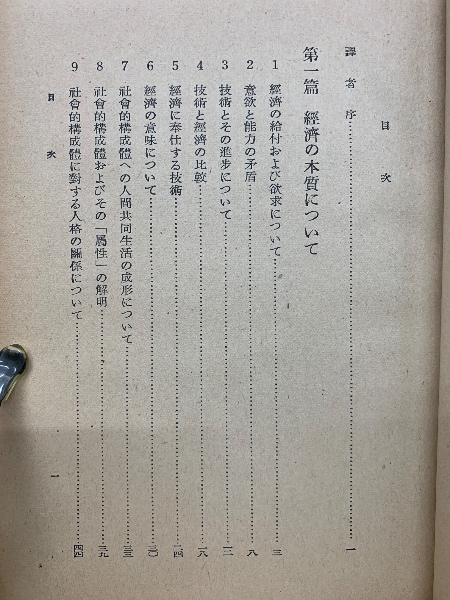 目次
譯者序……一
第一篇 經濟の本質について
1 經濟の給付および欲求について……三
2 意欲と能力の矛盾……八
3 技術とその進步について……一二
4 技術と經濟の比較……一八
5 經濟に奉仕する技術……二四
6 經濟の意味について……三〇
7 社會的構成體への人間共同生活の成形について……三三
8 社會的構成體およびその「屬性」の解明……三九
9 社會的構成體に對する人格の關係について……四四
目次
一